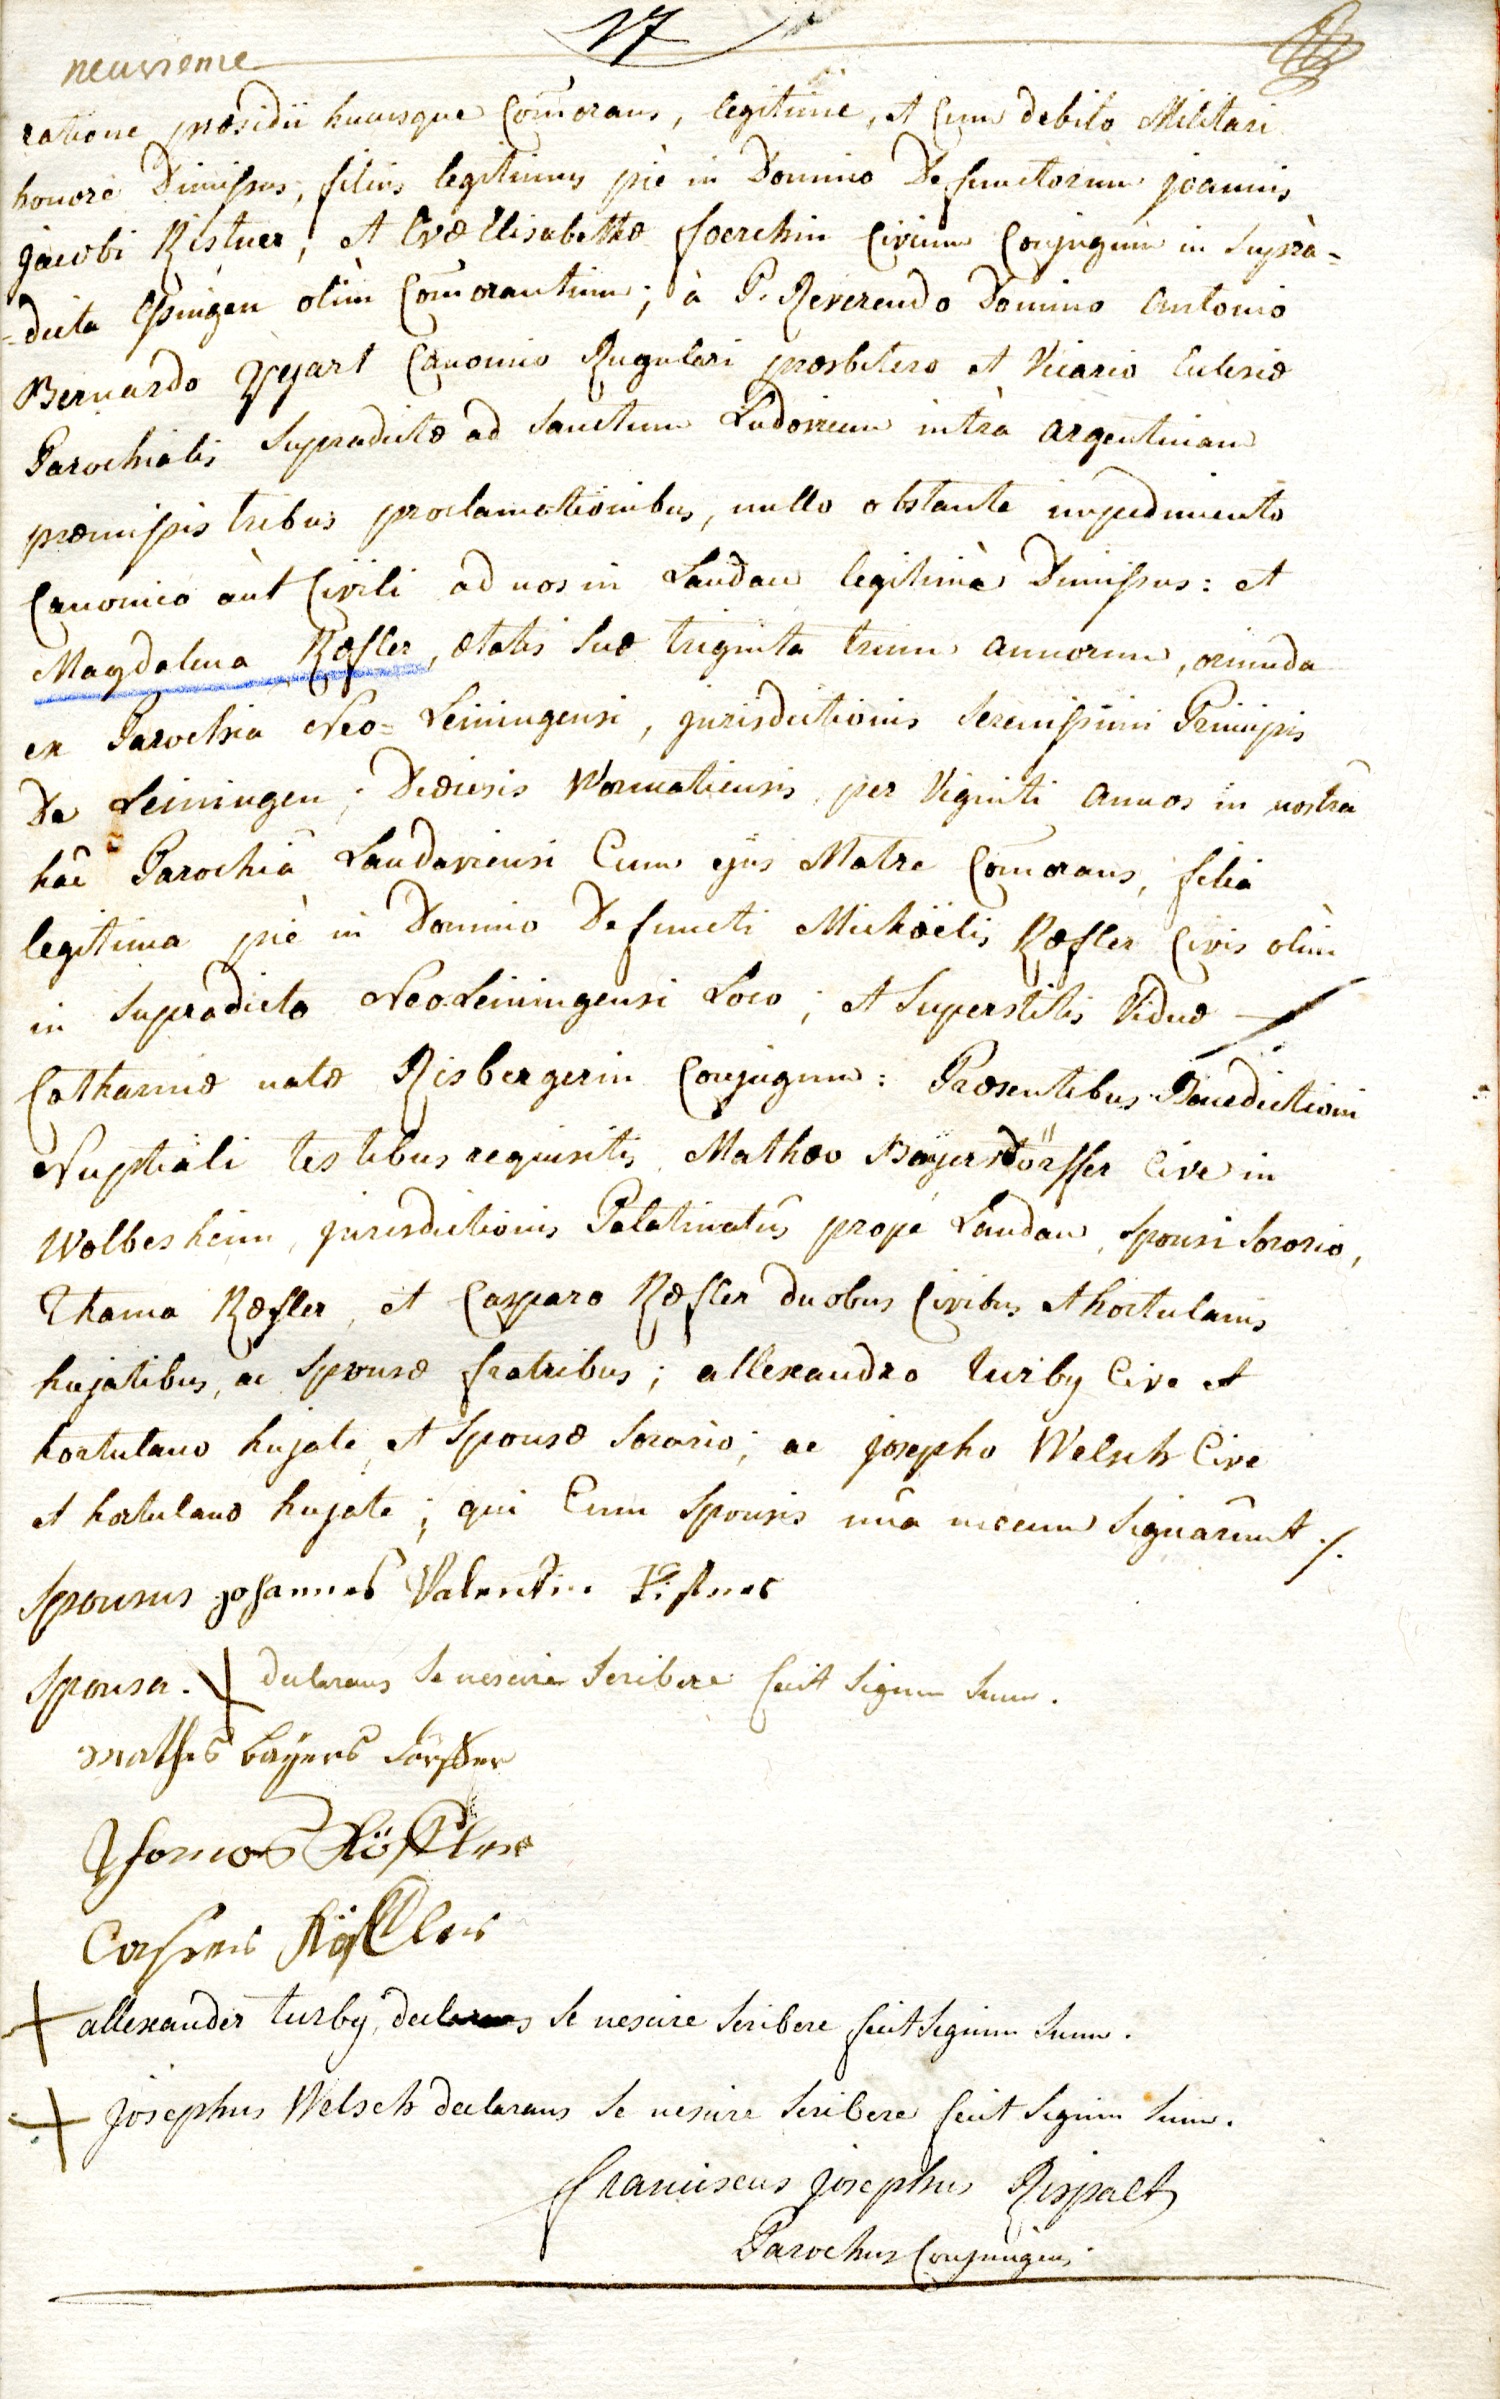 17
neuvieme
ratione præsidii hucusque Com̄orans, legitimè, et Cum debito Militari
honore Dimissus, filius legitimus piè in Domino Defunctorum joannis
jacobi Ristner, et Evæ Elisabethæ foerchin Civium Conjugum in Suprà=
=dicta Essingen olim Com̄orantium; à P. Reverendo Domino Antonio
Bernardo Ygart Canonico Regulari præsbitero et Vicario Eclesiæ
Parochialis Supradictæ ad Sanctum Ludovicum intrà Argentinam
præmissis tribus proclamationibus, nullo obstante impedimento
Canonico aùt Civili ad nos in Landau legitimè Dimissus: et
Magdalena Ræsler, ætatis Suæ triginta trium annorum, oriunda
ex Parochia Neo=Leiningensi, jurisdictionis Serenissimi Principis
De Leiningen; Diœcesis Wormatiensis, per Viginti annos in nostra
hâc Parochiâ Landaviensi Cum ejus Matre Com̄orans, filia
legitima piè in Domino Defuncti Michäelis Ræsler Civis olim
in Supradicto Neoleiningensi Loco; et Superstitis Viduæ
Catharinæ natæ Risbergerin Conjugum: Præsentibus Benedictioni
Nuptiali testibus requisitis Mathæo Bayersdörffer Cive in
Wolbesheim, jurisdictionis Palatinatûs propè Landau, Sponsi Sororio,
Thoma Ræsler, et Casparo Ræsler duobus Civibus et hortulanis
hujatibus, ac Sponsæ fratribus; allexandro turby Cive et
hortulano hujate, et Sponsæ Sororio; ac josepho Welsch Cive
et hortulano hujate; qui Cum Sponsis unâ mecum Signarunt ./.
Sponsus johannes Valentin Ristner
Sponsa. + declarans Se nescire Scribere fecit Signum Suum.
mathes bayers dörffer
Thomas Röstler
Casper Röstler
+ allexander turby, declarans Se nescire Scribere fecit Signum Suum.
+ josephus Welsch declarans Se nescire Scribere fecit Signum Suum.
franciscus josephus Rispalt
Parochus Conjungens